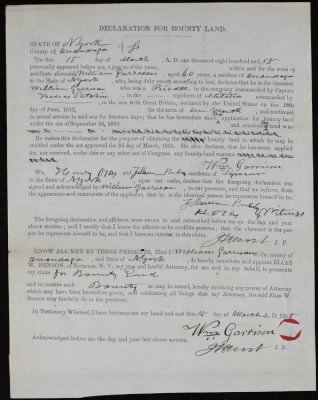 DECLARATION FOR BOUNTY LAND.
STATE OF N. York
County of Onondaga
On this 15 day of March A. D. one thousand eight hundred and
personally appeared before me a Justice of the peace, within and for the county
and State aforesaid William Garrison, aged 60 years, a resident of Onondaga
in the State of N. York, who, being duly sworn according to law, declares that he is the identical
William Garrison who was a Private in the company commanded by Captain
in the regiment of Militia commanded by
in the war with Great Britain, declared by the United States on the 18th
day of June, 1812, for the term of one Month and continued
in actual service in said war for fourteen days; that he has heretofore made application for bounty land
under the act of September 28, 1850, and received
He makes this declaration for the purpose of obtaining the bounty land to which he may be
entitled under the act approved the 3d day of March, 1855. He also declares, that he has never applied
nor received, under this or any other act of Congress, any bounty land warrant
Wm Garrison
We, Henry Ota and residents of Syracuse
in the State of N. York, upon our oaths, declare that the foregoing declaration was
signed and acknowledged by William Garrison, in our presence, and that we believe, from
the appearance and statements of the applicant, that he is the identical person he represents himself to be.
The foregoing declaration and affidavits were sworn to and subscribed before me on the day and year
above written; and I certify that I know the affiants to be credible persons; that the claimant is the person
he represents himself to be, and that I have no interest in this claim.
J. P.
KNOW ALL MEN BY THESE PRESENTS, That I William Garrison of the county of
Onondaga, and State of N. York, do hereby constitute and appoint ELIAS
W. BENSON, of Syracuse, N. Y., my true and lawful Attorney, for me and in my behalf, to presente
my claim for Bounty Land
and to receive such Bounty as may be issued, hereby revoking any power of Attorney
which may have been heretofore given, and confirming all things that my Attorney, the said Elias W.
Benson may lawfully do in the premises.
In Testimony Whereof, I have hereunto set my hand and seal this 15 day of March A. D. 185
Wm Garrison
Acknowledged before me the day and year last above written.
J. P.